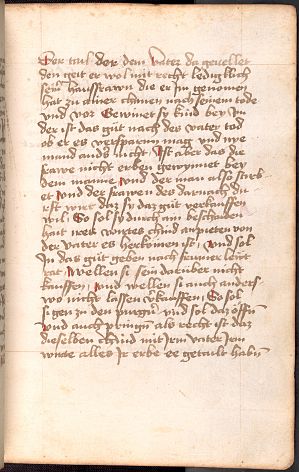 Der tail der dem vater da geuellet
den geit er wol mit recht ledigklich
seiner hausfrawn die er Im genomen
hat zu ainer chonen nach seinem tode
und vor Gewinet sy kind bey Im
der ist das gut nach des vater tod
ob er es versparnn mag und nye
mand anders nicht Ist aber das die
frawe nicht erben gewynnet bey
dem manne und der man also stirb
et und der frawen des darnach du
rft wirt das sy daz gut verkauffen
wil So sol sy durch ain bescheiden
hait irez wirtes chind anpieten von
der vater es herkomen ist und sol
In das gut geben nach seiner
Wellen si sein darüber nicht
kauffen und wellen si auch anders
wo nicht lassen verkauffen So sol
si gen zu den purgern und sol daz offen
und auch pringen als recht ist daz
dieselben chind mit Irm vater Irm
alles Ir erbe ee getailt habn